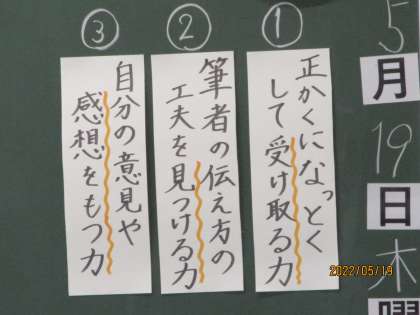 5
月
19
日
木
曜
①
正かくになっとく
して受け取る力
②
筆者の伝え方の
工夫を見つける力
③
自分の意見や
感想をもつ力
2022/05/19